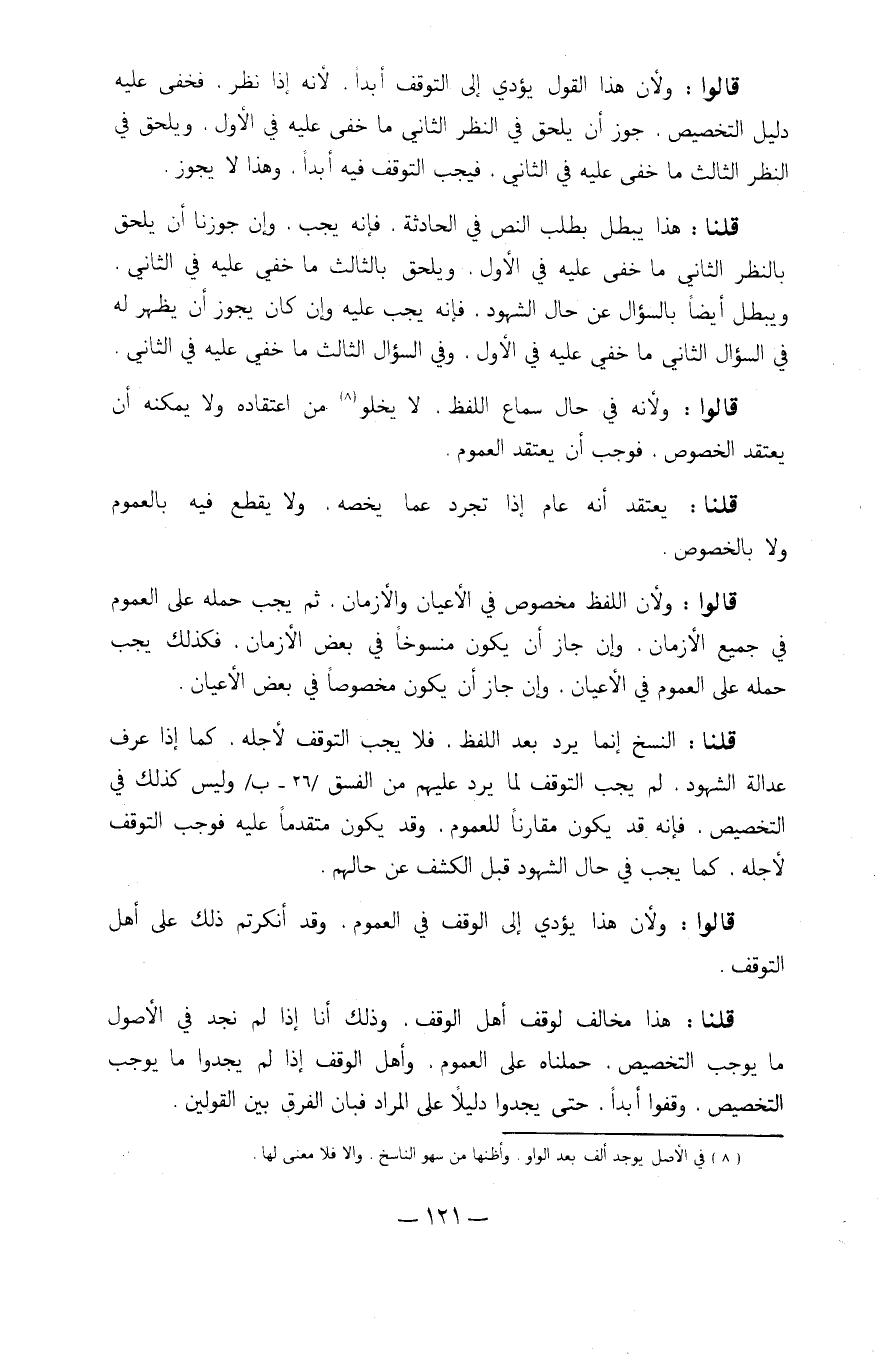 قالوا : ولأن هذا القول يؤدي إلى التوقف أبداً ، لأنه إذا نظر ، فخفى عليه
دليل التخصيص ، جوز أن يلحق في النظر الثاني ما خفى عليه في الأول ، ويلحق في
النظر الثالث ما خفى عليه في الثاني ، فيجب التوقف فيه أبداً ، وهذا لا يجوز .
قلنا : هذا يبطل بطلب النص في الحادثة ، فإنه يجب ، وإن جوزنا أن يلحق
بالنظر الثاني ما خفى عليه في الأول ، ويلحق بالثالث ما خفي عليه في الثاني .
ويبطل أيضاً بالسؤال عن حال الشهود ، فإنه يجب عليه وإن كان يجوز أن يظهر له
في السؤال الثاني ما خفي عليه في الأول ، وفي السؤال الثالث ما خفي عليه في الثاني .
قالوا : ولأنه في حال سماع اللفظ ، لا يخلو(٨) من اعتقاده ولا يمكنه أن
يعتقد الخصوص ، فوجب أن يعتقد العموم .
قلنا : يعتقد أنه عام إذا تجرد عما يخصه ، ولا يقطع فيه بالعموم
ولا بالخصوص .
قالوا : ولأن اللفظ مخصوص في الأعيان والأزمان ، ثم يجب حمله على العموم
في جميع الأزمان ، وإن جاز أن يكون منسوخاً في بعض الأزمان ، فكذلك يجب
حمله على العموم في الأعيان ، وإن جاز أن يكون مخصوصاً في بعض الأعيان .
قلنا : النسخ إنما يرد بعد اللفظ ، فلا يجب التوقف لأجله ، كما إذا عرف
عدالة الشهود ، لم يجب التوقف لما يرد عليهم من الفسق /٢٦ ـ ب/ وليس كذلك في
التخصيص ، فإنه قد يكون مقارناً للعموم ، وقد يكون متقدماً عليه فوجب التوقف
لأجله ، كما يجب في حال الشهود قبل الكشف عن حالهم .
قالوا : ولأن هذا يؤدي إلى الوقف في العموم ، وقد أنكرتم ذلك على أهل
التوقف .
قلنا : هذا مخالف لوقف أهل الوقف ، وذلك أنا إذا لم نجد في الأصول
ما يوجب التخصيص ، حملناه على العموم ، وأهل الوقف إذا لم يجدوا ما يوجب
التخصيص ، وقفوا أبداً ، حتى يجدوا دليلًا على المراد فبان الفرق بين القولين .
(٨) في الأصل يوجد ألف بعد الواو ، وأظنها من سهو الناسخ ، والا فلا معنى لها .
— ١٢١ —